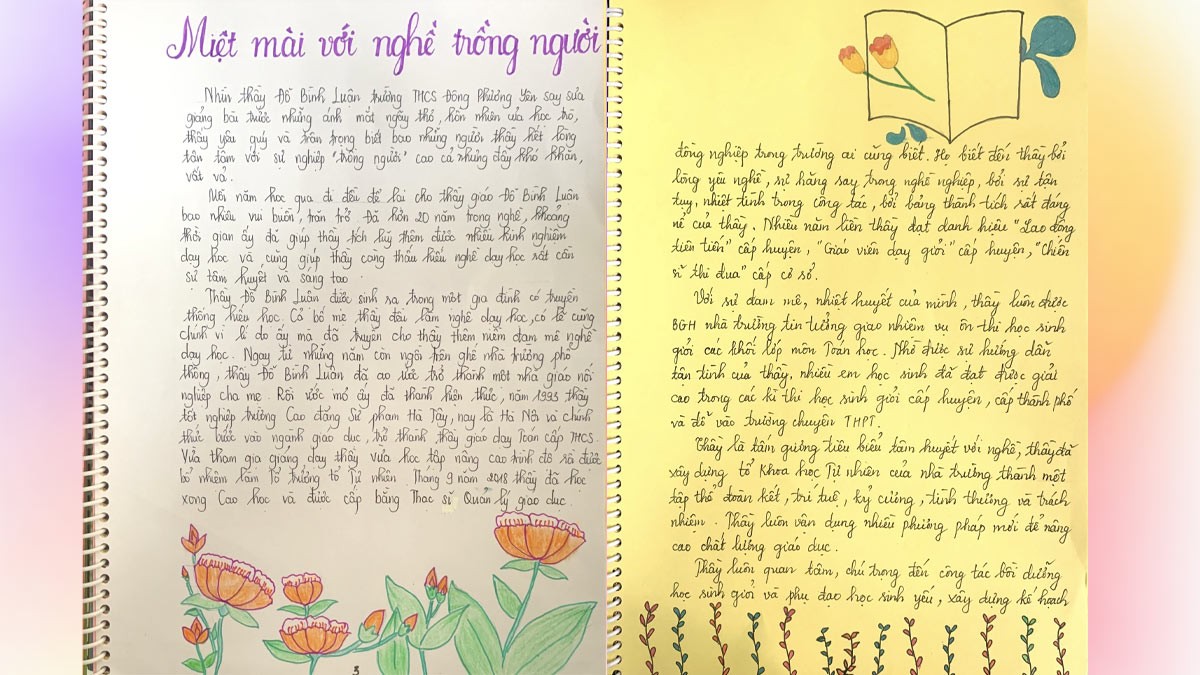 Miệt mài với nghề trồng người
Nhìn thầy Đỗ Bình Luân trường THCS Đông Phương Yên say sưa
giảng bài trước những ánh mắt ngây thơ, hồn nhiên của học trò,
thầy yêu quý và trân trọng biết bao những người thầy hết lòng
tận tâm với sự nghiệp "trồng người" cao cả nhưng đầy khó khăn,
vất vả.
Mỗi năm học qua đi đều để lại cho thầy giáo Đỗ Bình Luân
bao nhiêu vui buồn, trăn trở. Đã hơn 20 năm trong nghề, khoảng
thời gian ấy đã giúp thầy tích luỹ thêm được nhiều kinh nghiệm
dạy học và cũng giúp thầy càng thấu hiểu nghề dạy học rất cần
sự tâm huyết và sáng tạo.
Thầy Đỗ Bình Luân được sinh ra trong một gia đình có truyền
thống hiếu học. Cả bố mẹ thầy đều làm nghề dạy học, có lẽ cũng
chính vì lí do ấy mà đã truyền cho thầy thêm niềm đam mê nghề
dạy học. Ngay từ những năm còn ngồi trên ghế nhà trường phổ
thông, thầy Đỗ Bình Luân đã ao ước trở thành một nhà giáo nối
nghiệp cha mẹ. Rồi ước mơ ấy đã thành hiện thực, năm 1993 thầy
tốt nghiệp trường Cao đẳng Sư phạm Hà Tây, nay là Hà Nội và chính
thức bước vào ngành giáo dục, trở thành thầy giáo dạy Toán cấp THCS.
Vừa tham gia giảng dạy thầy vừa học tập nâng cao trình độ rồi được
bổ nhiệm làm Tổ trưởng tổ Tự nhiên. Tháng 9 năm 2018 thầy đã học
xong Cao học và được cấp bằng Thạc sĩ Quản lý giáo dục.
3
đồng nghiệp trong trường ai cũng biết. Họ biết đến thầy bởi
lòng yêu nghề, sự hăng say trong nghề nghiệp, bởi sự tận
tuỵ, nhiệt tình trong công tác, bởi bảng thành tích rất đáng
nể của thầy. Nhiều năm liền thầy đạt danh hiệu "Lao động
tiên tiến" cấp huyện, "Giáo viên dạy giỏi" cấp huyện, "Chiến
sĩ thi đua" cấp cơ sở.
Với sự đam mê, nhiệt huyết của mình, thầy luôn được
BGH nhà trường tin tưởng giao nhiệm vụ ôn thi học sinh
giỏi các khối lớp môn Toán học. Nhờ được sự hướng dẫn
tận tình của thầy, nhiều em học sinh đã đạt được giải
cao trong các kì thi học sinh giỏi cấp huyện, cấp thành phố
và đỗ vào trường chuyên THPT.
Thầy là tấm gương tiêu biểu tâm huyết với nghề, thầy đã
xây dựng tổ Khoa học Tự nhiên của nhà trường thành một
tập thể đoàn kết, trí tuệ, kỷ cương, tình thương và trách
nhiệm. Thầy luôn vận dụng nhiều phương pháp mới để nâng
cao chất lượng giáo dục.
Thầy luôn quan tâm, chú trọng đến công tác bồi dưỡng
học sinh giỏi và phụ đạo học sinh yếu, xây dựng kế hoạch